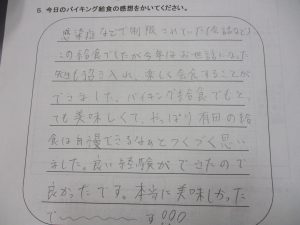 6 今日のバイキング給食の感想をかいてください。
感染症などで制限されていた(会話など)
この給食でしたが今年はお世話になった
先生も招き入れ、楽しく会食することが
できました。バイキング給食でもと
ても美味しくて、やっぱり有田の給
食は自慢できるなぁとつくづく思い
ました。良い経験ができたので
良かったです。本当に美味しかった
で〜〜〜〜す。。。